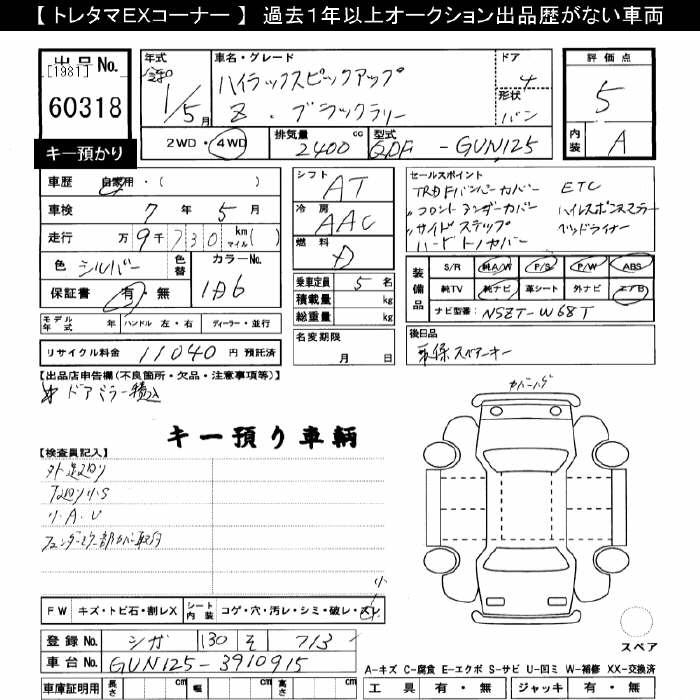 【 トレタマEXコーナー 】 過去1年以上オークション出品歴がない車両
出品No.
[1981]
60318
キー預かり
年式
1/5月
車名・グレード
ハイラックスピックアップ
Z・ブラックラリー
ドア
4
形状
バン
2WD・4WD
排気量 2400 cc
型式 QDF-GUN125
評価点
5
内装 A
車歴 自家用・( )
車検 7年 5月
走行 万 9千730 km マイル( )
色 シルバー 色替 カラーNo. 1D6
保証書 有・無
モデル年式 年 ハンドル 左・右 ディーラー・並行
リサイクル料金 11040 円 預託済
シフト AT
冷房 AAC
燃料 D
乗車定員 5 名
積載量 kg
総重量 kg
名変期限 月 日
セールスポイント
TRDFバンパーカバー ETC
〃フロントアンダーカバー
〃サイドステップ ベッドライナー
ハードトノカバー
装備品 S/R 純A/W P/S P/W ABS
純TV 純ナビ 革シート 外ナビ エアB
ナビ型番 NSZT-W68T
後日品
取保スペアーキー
【出品店申告欄(不良箇所・欠品・注意事項等)】
ドアミラー積込
キー預り車輌
【検査員記入】
下廻り小S
小A、U
カバーハゲ
FW キズ・トビ石・割レX シート内装 コゲ・穴・汚レ・シミ・破レ・スレ
小
登録No. シガ 130 そ 713
車台No. GUN125-3910915
車庫証明用 長さ cm 幅 cm 高さ cm
スペア
A-キズ C-腐食 E-エクボ S-サビ U-凹ミ W-補修 XX-交換済
工具 有・無 ジャッキ 有・無